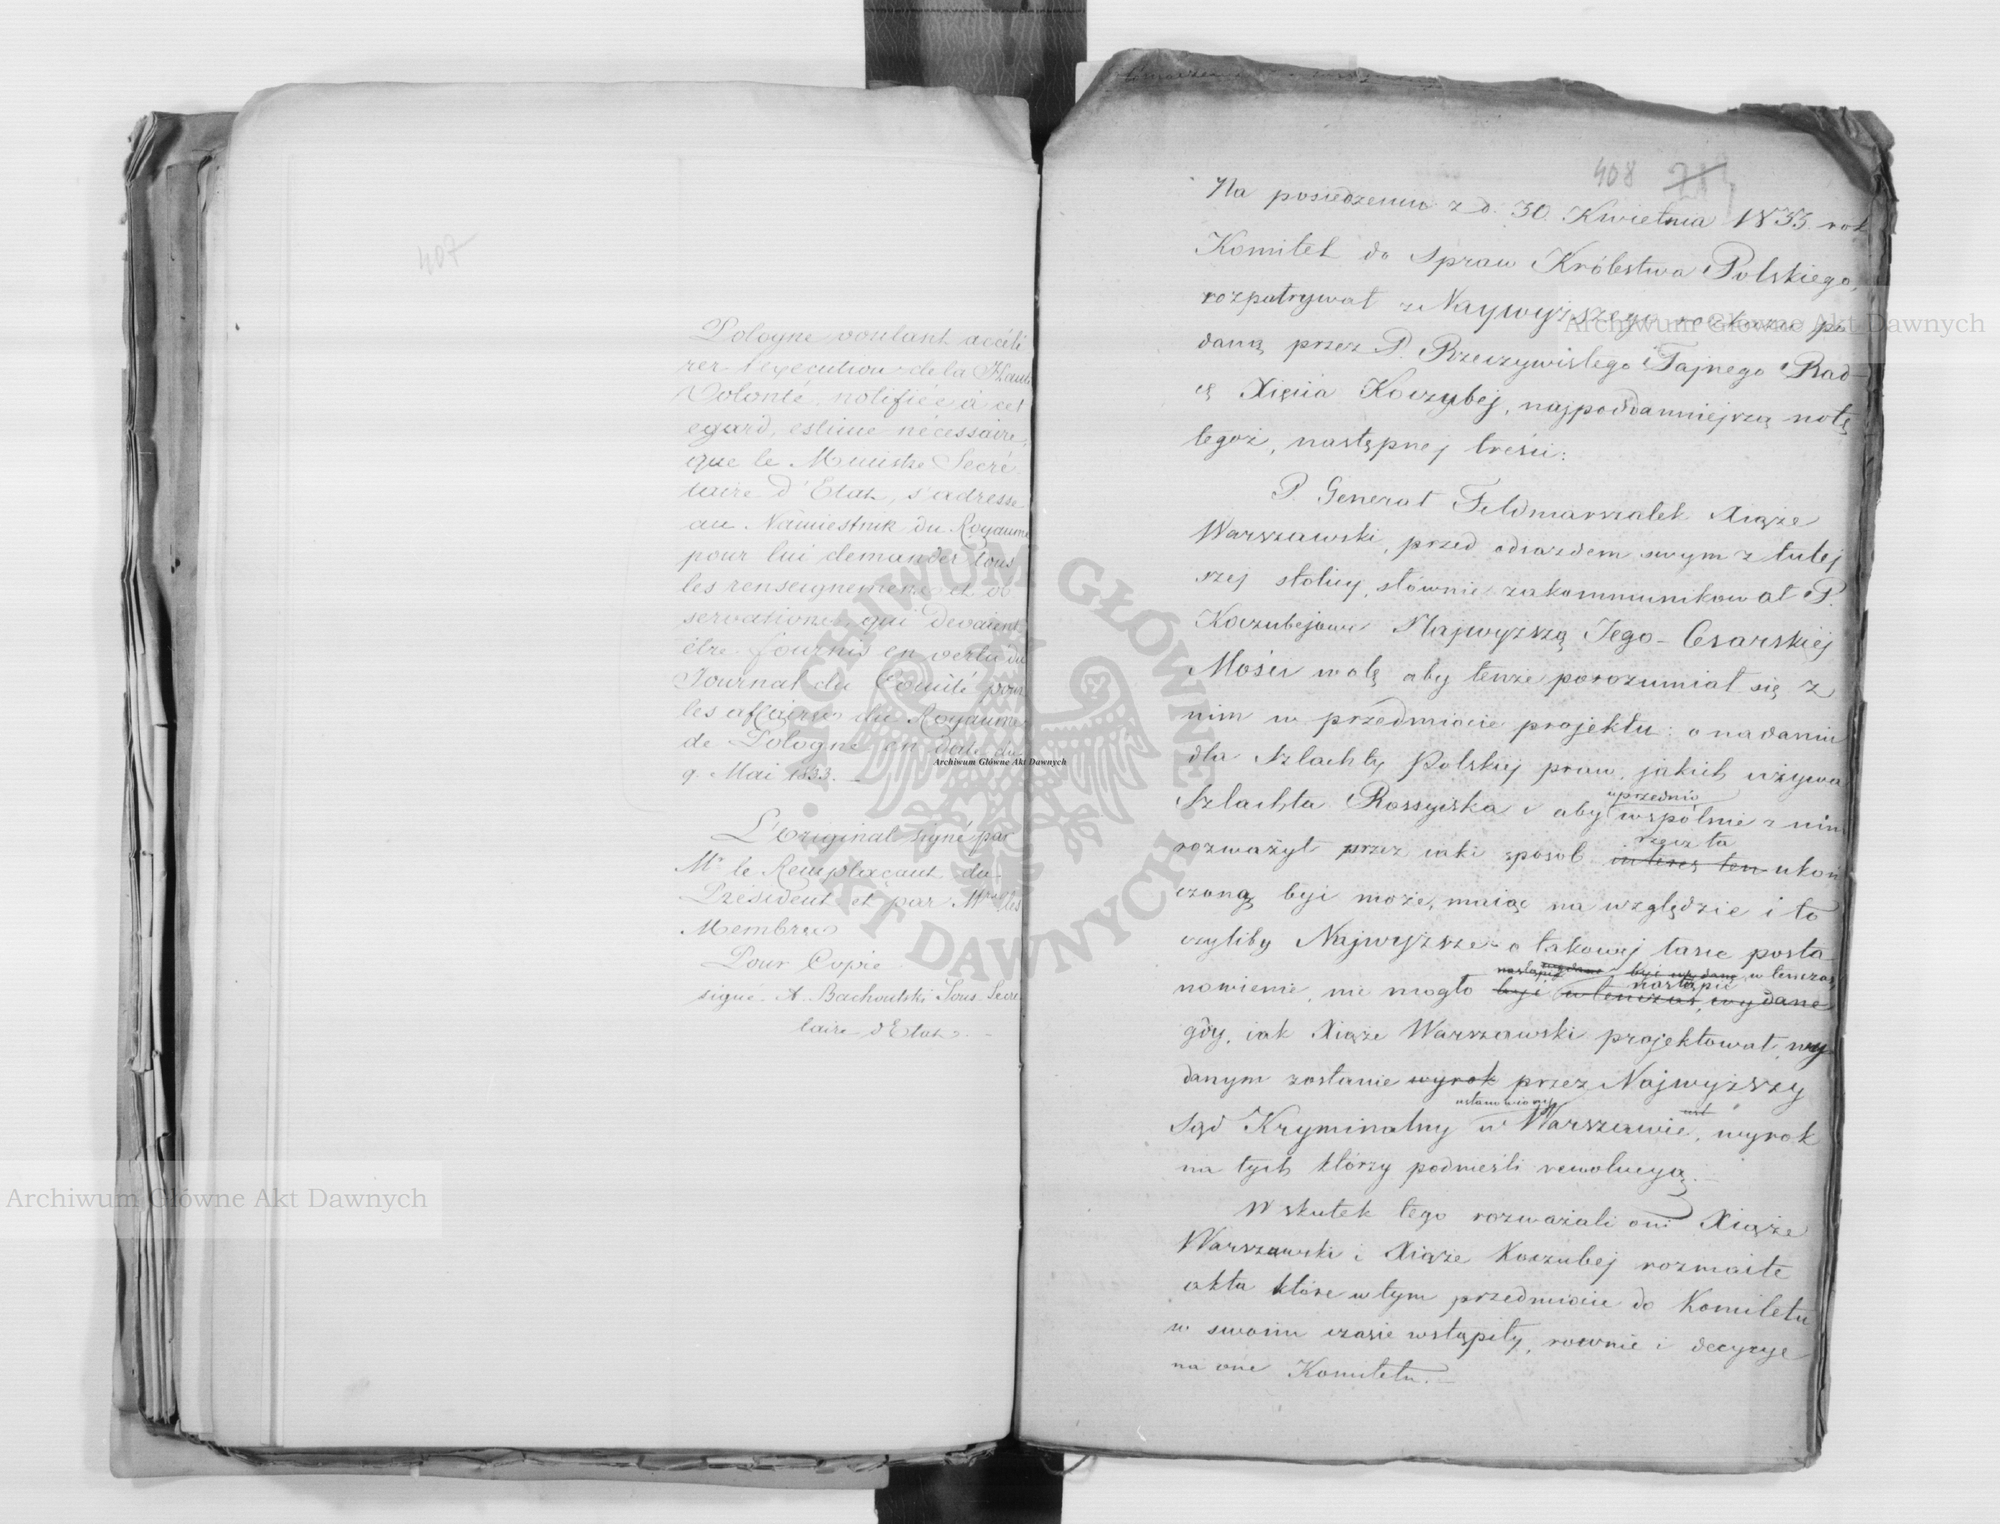 407
Pologne voulant accélé
rer l'execution de la Haute
Volonté, notifiée à cet
egard, estime nécessaire,
que le Ministre Secré
taire d'Etat, s'adresse
au Namiestnik du Royaume
pour lui demander tous
les renseignemens et ob
servations, qui devaient
être fournis en vertu du
Journal du Comité pour
les affaires du Royaume
de Pologne en date du
9. Mai 1833. —
L'original signé par
Mr le Remplaçant du
Président et par Mrs les
Membres
Pour Copie
signé. A. Bachoutski Sous Secré
taire d'Etat. —
408 211
Na posiedzeniu z d. 30. Kwietnia 1833. rok
Komitet do Spraw Królestwa Polskiego,
rozpatrywał z Naywyższego rozkazu po
daną przez P. Rzeczywistego Tajnego Rad-
cę Xięcia Koczubej, najpoddanniejszą notę
tegoż, następnej treści:
P. Generał Feldmarszałek Xiąże
Warszawski, przed odiazdem swym z tutej
szej stolicy, słównie zakommunikował P.
Koczubejowi Najwyższą Jego-Cesarskiej
Mości wolę aby tenże porozumiał się z
nim w przedmiocie projektu o nadaniu
dla Szlachty Polskiej praw, jakich używa
Szlachta Rossyiska i aby wspólnie z nim
uprzednio
rozważył przez iaki sposób interes ten ukoń
rzecz ta
czoną byi może, maiąc na względzie i to
czyliby Najwyższe o takowej łasce posta
nowienie, nie mogło byi wtenczas, wydane
nastąpić wydane byi wydane w tenczas,
nastąpić
gdy, iak Xiąże Warszawski projektował, wy
danym zostanie wyrok przez Najwyższy
Sąd Kryminalny w Warszawie, wyrok
ustanowiony ust
na tych którzy podnieśli rewolucyą. —
W skutek tego rozważali oni Xiąże
Warszawski i Xiąże Koczubej rozmaite
akta które w tym przedmiocie do Komitetu
w swoim czasie wstąpiły, rownie i decyzye
na one Komitetu. —
Archiwum Główne Akt Dawnych
Archiwum Główne Akt Dawnych
Archiwum Główne Akt Dawnych
ARCHIWUM GŁÓWNE AKT DAWNYCH